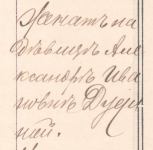 Женатъ на
дѣвицѣ Але
ксандрѣ Ива
новнѣ Дзер
ной.